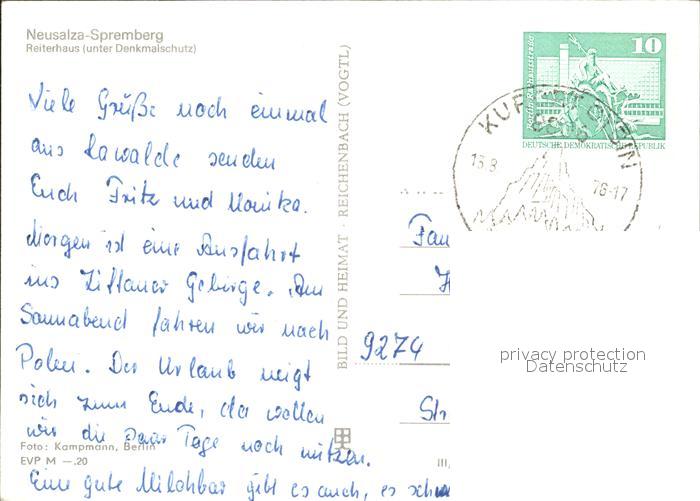 Neusalza-Spremberg
Reiterhaus (unter Denkmalschutz)
Viele Grüße noch einmal
aus Lawalde senden
Euch Fritz und Monika.
Morgen ist eine Ausfahrt
ins Zittauer Gebirge. Am
Sonnabend fahren wir nach
Polen. Der Urlaub neigt
sich zum Ende, da wollen
wir die paar Tage noch nützen.
Foto: Kampmann, Berlin
EVP M —.20
Eine gute Milchbar gibt es auch, es
BILD UND HEIMAT · REICHENBACH (VOGTL)
10
DEUTSCHE DEMOKRATISCHE REPUBLIK
15.8
76-17
Fam
9274
Str
III
privacy protection
Datenschutz